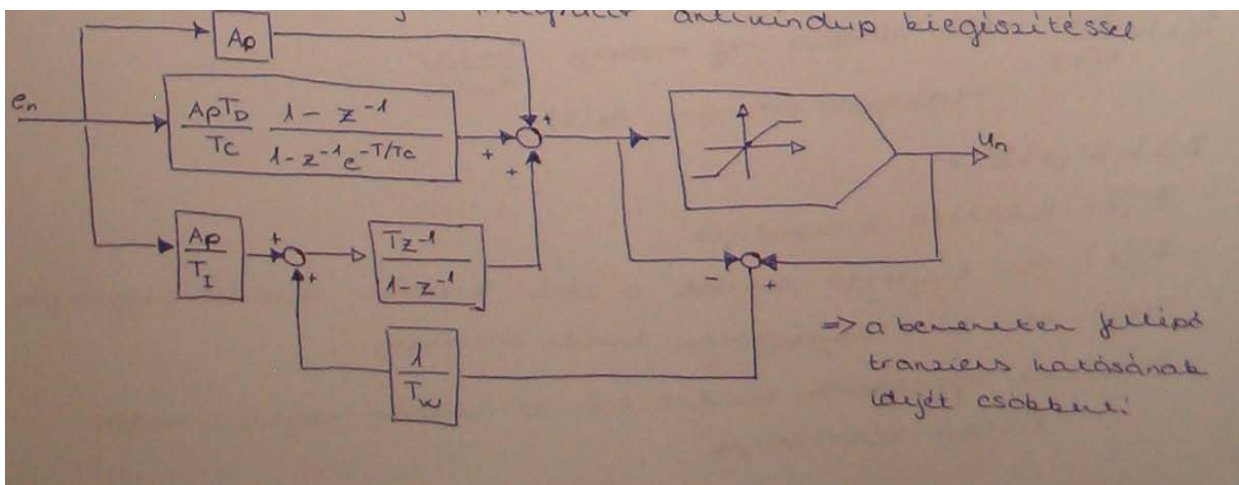 antiwindup kiegészítéssel
Ap
en
ApTD / Tc 1 - z⁻¹ / 1 - z⁻¹e^-T/Tc
+
+
+
un
Ap / TI
+
+
Tz⁻¹ / 1 - z⁻¹
-
+
1 / Tw
=> a bemeneten fellépő
tranziens hatásának
idejét csökkenti